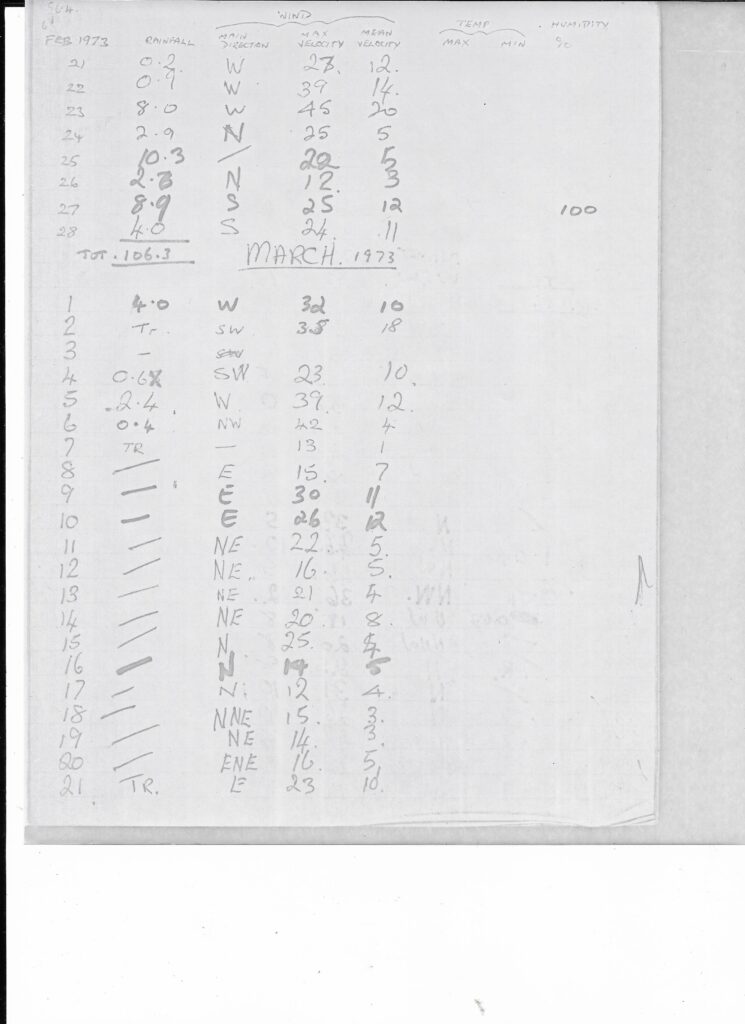 WIND
TEMP
FEB 1973 RAINFALL MAIN DIRECTION MAX VELOCITY MEAN VELOCITY MAX MIN HUMIDITY %
21 0.2 W 27. 12.
22 0.9 W 39 14.
23 8.0 W 45 20
24 2.9 N 25 5
25 10.3 / 22 5
26 2.3 N 12. 3
27 8.9 S 25 12 100
28 4.0 S 24. 11
TOT. 106.3 MARCH. 1973
1 4.0 W 32 10
2 Tr. SW 38 18
3 - SW
4 0.6 SW 23. 10.
5 2.4. W. 39. 12.
6 0.4 NW 42 4
7 TR — 13 1
8 — E 15. 7
9 — E 30 11
10 — E 26 12
11 — NE 22 5.
12 — NE. 16. 5.
13 — NE 21 4
14 — NE 20. 8.
15 — N. 25.
16 — N 14 5
17 — N. 12 4.
18 — NNE 15. 3.
19 — NE 14. 3.
20 — ENE 16. 5.
21. TR. E 23 10.